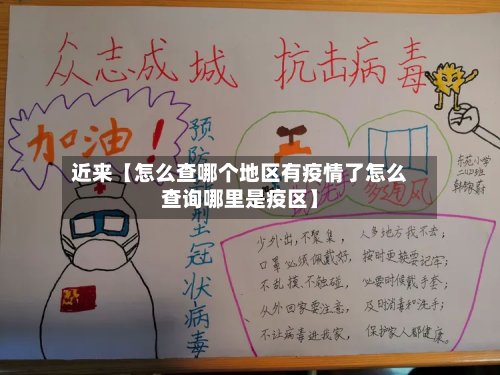 众志成城 抗击病毒
加油！
预防新型冠状病毒
多通风
东苑小学
近来【怎么查哪个地区有疫情了怎么
查询哪里是疫区】
少外出，不聚集，人多地方我不去；
口罩必须佩戴好，按时更换要记牢；
不乱摸、不触碰，必要时候戴手套；
从外回家要注意，及时消毒和洗手；
不让病毒进我家，保护家人都健康。